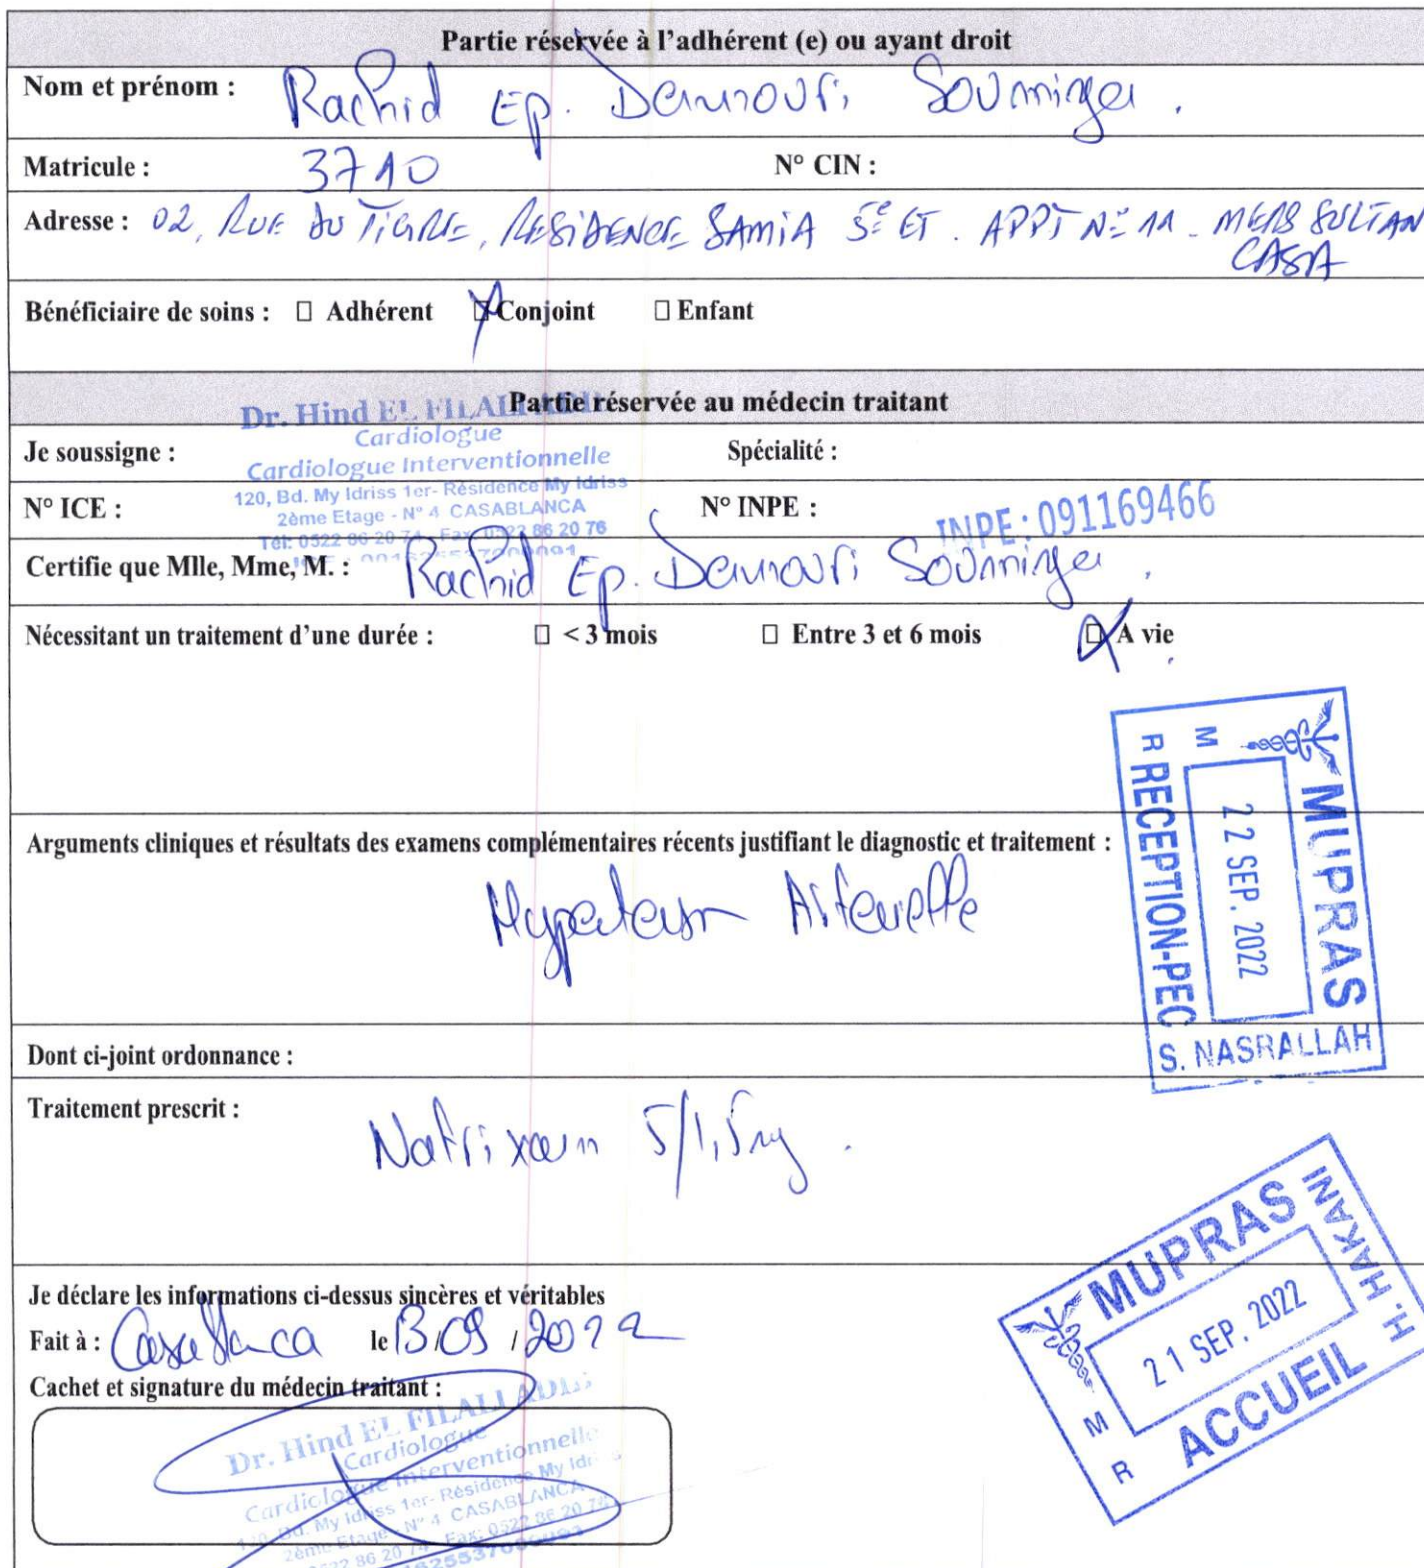 Partie réservée à l'adhérent (e) ou ayant droit
Nom et prénom : Rachid Ep. Damouri Soumiya .
Matricule : 3710 N° CIN :
Adresse : 02, RUE DU TIGRE, RESIDENCE SAMIA 5è ET. APPT N° 11 - MERS SULTAN
CASA
Bénéficiaire de soins : □ Adhérent □ Conjoint □ Enfant
Partie réservée au médecin traitant
Dr. Hind EL FILALI
Cardiologue
Cardiologue Interventionnelle
120, Bd. My Idriss 1er- Résidence My Idriss
2ème Etage - N° 4 CASABLANCA
Tél: 0522 86 20 74 - Fax: 0522 86 20 76
Je soussigne : Spécialité :
N° ICE : N° INPE :
INPE : 091169466
Certifie que Mlle, Mme, M. : Rachid Ep. Damouri Soumiya .
Nécessitant un traitement d'une durée : □ < 3 mois □ Entre 3 et 6 mois □ A vie
MUPRAS
22 SEP. 2022
M
R RECEPTION-PEC
S. NASRALLAH
Arguments cliniques et résultats des examens complémentaires récents justifiant le diagnostic et traitement :
Hypertension Artérielle
Dont ci-joint ordonnance :
Traitement prescrit :
Natrixam 5/1,5mg .
MUPRAS
21 SEP. 2022
M
R ACCUEIL
H. HAKANI
Je déclare les informations ci-dessus sincères et véritables
Fait à : Casablanca le 13/09/2022
Cachet et signature du médecin traitant :
Dr. Hind EL FILALI
Cardiologue
Cardiologue Interventionnelle
My Idriss 1er- Résidence My
2ème Etage - N° 4 CASABLANCA
0522 86 20 74 Fax: 0522 86 20